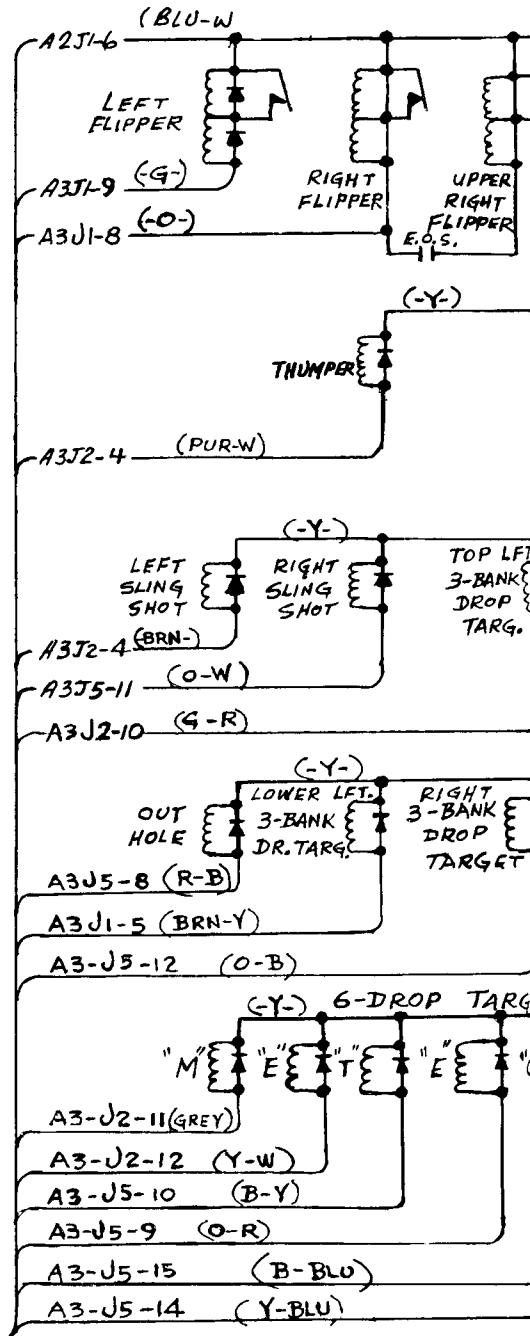 (BLU-W
A2J1-6
LEFT
FLIPPER
A3J1-9 (-G-)
RIGHT
FLIPPER
UPPER
RIGHT
FLIPPER
A3J1-8 (-O-)
E.O.S.
(-Y-)
THUMPER
A3J2-4 (PUR-W)
(-Y-)
LEFT
SLING
SHOT
RIGHT
SLING
SHOT
TOP LFT
3-BANK
DROP
TARG.
A3J2-4 (BRN-)
A3J5-11 (O-W)
A3J2-10 (G-R)
(-Y-)
OUT
HOLE
LOWER LFT.
3-BANK
DR.TARG.
RIGHT
3-BANK
DROP
TARGET
A3J5-8 (R-B)
A3J1-5 (BRN-Y)
A3-J5-12 (O-B)
(-Y-) 6-DROP TARG
"M" "E" "T" "E"
A3-J2-11 (GREY)
A3-J2-12 (Y-W)
A3-J5-10 (B-Y)
A3-J5-9 (O-R)
A3-J5-15 (B-BLU)
A3-J5-14 (Y-BLU)